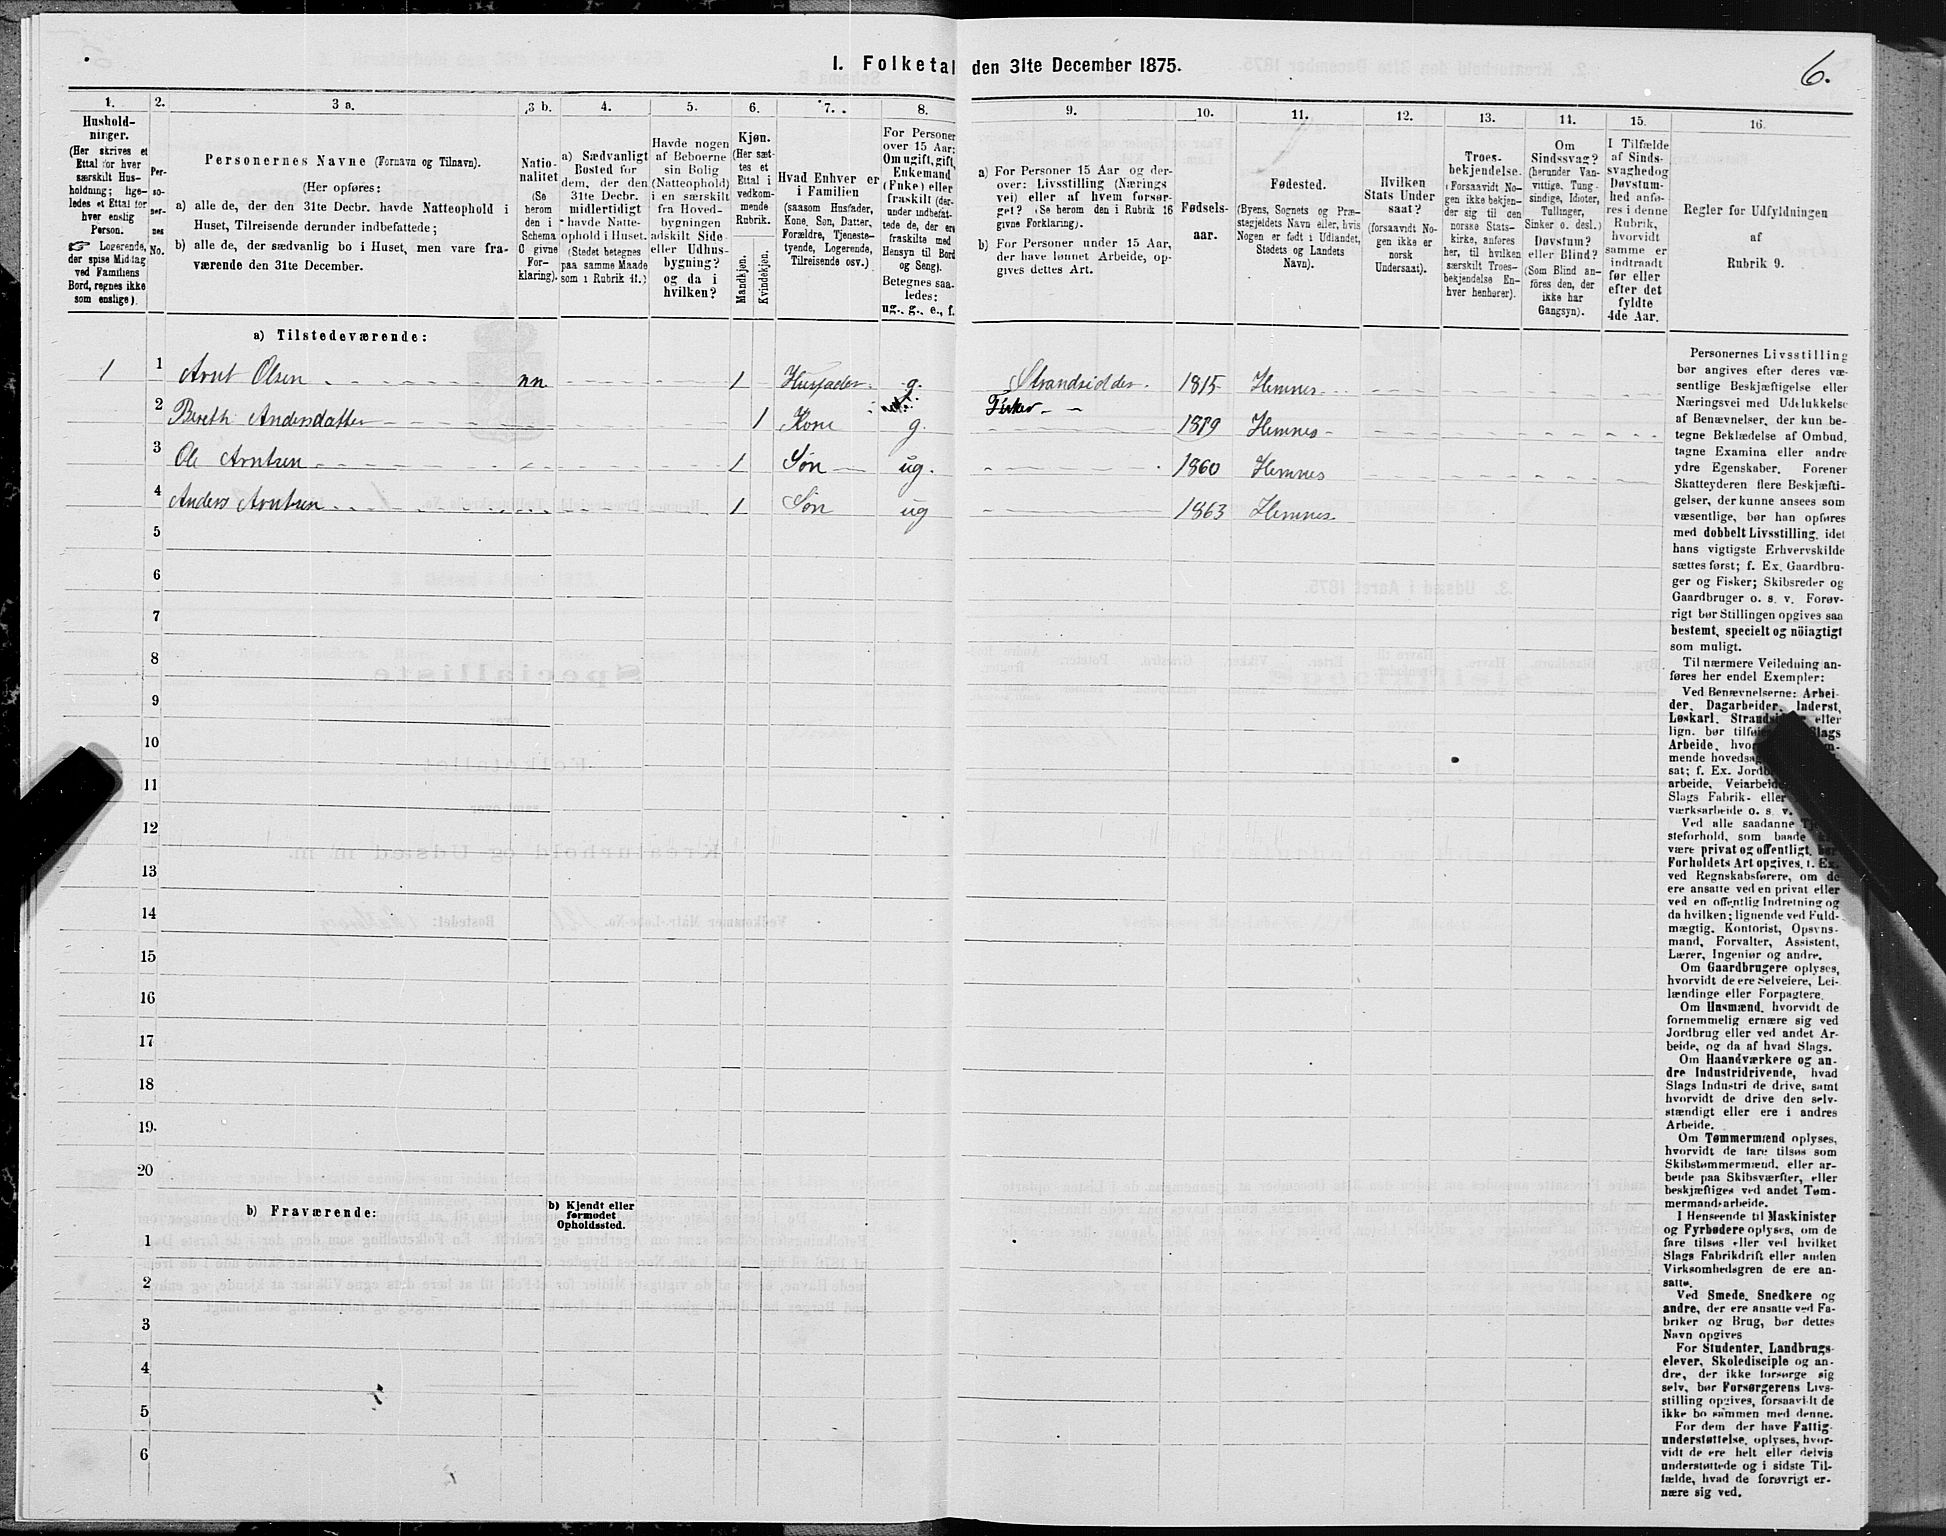 I. Folketal den 31te December 1875.
6.
1.
Hushold-
ninger.
(Her skrives et
Ettal for hver
særskilt Hus-
holdning; lige-
ledes et Ettal for
hver enslig
Person.
Logerende,
der spise Middag
ved Familiens
Bord, regnes ikke
som enslige).
2.
Per-
so-
ner-
nes
No.
3 a.
Personernes Navne (Fornavn og Tilnavn).
(Her opføres:
a) alle de, der den 31te Decbr. havde Natteophold i
Huset, Tilreisende derunder indbefattede;
b) alle de, der sædvanlig bo i Huset, men vare fra-
værende den 31te December.
3 b.
Natio-
nalitet
(Se
herom
den i
Schema
C givne
For-
klaring).
4.
a) Sædvanligt
Bosted for
dem, der den
31te Decbr.
midlertidigt
havde Natte-
ophold i Huset.
(Stedet betegnes
paa samme Maade
som i Rubrik 11.)
5.
Havde nogen
af Beboerne
sin Bolig
(Natteophold)
i en særskilt
fra Hoved-
bygningen
adskilt Side-
eller Udhus-
bygning?
og da i
hvilken?
6.
Kjøn.
(Her sæt-
tes et
Ettal i
vedkom-
mende
Rubrik.
Mandkjøn.
Kvindekjøn.
7.
Hvad Enhver er
i Familien
(saasom Husfader,
Kone, Søn, Datter,
Forældre, Tjeneste-
tyende, Logerende,
Tilreisende osv.)
8.
For Personer
over 15 Aar:
Om ugift, gift,
Enkemand
(Enke) eller
fraskilt (der-
under indbefat-
tede de, der ere
fraskilte med
Hensyn til Bord
og Seng).
Betegnes saa-
ledes:
ug., g., e., f.
9.
a) For Personer 15 Aar og der-
over: Livsstilling (Nærings
vei) eller af hvem forsør-
get? (Se herom den i Rubrik 16
givne Forklaring).
b) For Personer under 15 Aar,
der have lønnet Arbeide, op-
gives dettes Art.
10.
Fødsels-
aar.
11.
Fødested.
(Byens, Sognets og Præ-
stegjeldets Navn eller, hvis
Nogen er født i Udlandet,
Stedets og Landets
Navn).
12.
Hvilken
Stats Under
saat?
(forsaavidt No-
gen ikke er
norsk
Undersaat).
13.
Troes-
bekjendelse.
(Forsaavidt No-
gen ikke bekjen-
der sig til den
norske Stats-
kirke, anføres
her, til hvilken
særskilt Troes-
bekjendelse En-
hver henhører).
14.
Om
Sindssvag?
(herunder Van-
vittige, Tung-
sindige, Idioter,
Tullinger,
Sinker o. desl.)
Døvstum?
eller Blind?
(Som Blind an-
føres den, der
ikke har
Gangsyn).
15.
I Tilfælde
af Sinds-
svaghed og
Døvstum-
hed anfø-
res i denne
Rubrik,
hvorvidt
samme er
indtraadt
før eller
efter det
fyldte
4de Aar.
16.
Regler for Udfyldningen
af
Rubrik 9.
a) Tilstedeværende:
1 1 Arnt Olsen nn. 1 Husfader g. Strandsidder. 1815 Hemnes
Fisker
2 Bereth Andersdatter 1 Kone g. 1819 Hemnes
3 Ole Arntsen 1 Søn ug. 1860 Hemnes
4 Anders Arntsen 1 Søn ug 1863 Hemnes
5
6
7
8
9
10
11
12
13
14
15
16
17
18
19.
20
b) Fraværende:
b) Kjendt eller
formodet
Opholdssted.
1
2
3
4
5
6
Personernes Livsstilling
bør angives efter deres væ-
sentlige Beskjæftigelse eller
Næringsvei med Udelukkelse
af Benævnelser, der kun be-
tegne Beklædelse af Ombud,
tagne Examina eller andre
ydre Egenskaber. Forener
Skatteyderen flere Beskjæfti-
gelser, der kunne ansees som
væsentlige, bør han opføres
med dobbelt Livsstilling, idet
hans vigtigste Erhvervskilde
sættes først; f. Ex. Gaardbru-
ger og Fisker; Skibsreder og
Gaardbruger o. s. v. Forøv-
rigt bør Stillingen opgives saa
bestemt, specielt og nöiagtigt
som muligt.
Til nærmere Veiledning an-
føres her endel Exempler:
Ved Benævnelserne: Arbei-
der, Dagarbeider, Inderst,
Løskarl, eller
lign. bør Slags
Arbeide,
mende
sat; f. Ex.
arbeide,
Slags Fabrik- eller
værksarbeide o. s. v.
Ved alle saadanne
steforhold, som baade
være privat og offentlig,
Forholdets Art opgives, f. Ex.
ved Regnskabsførere, om de
ere ansatte ved en privat eller
ved en offentlig Indretning og
da hvilken; lignende ved Fuld-
mægtig, Kontorist, Opsyns-
mand, Forvalter, Assistent,
Lærer, Ingeniør og andre.
Om Gaardbrugere oplyses,
hvorvidt de ere Selveiere, Lei-
lændinge eller Forpagtere.
Om Husmænd, hvorvidt de
fornemmelig ernære sig ved
Jordbrug eller ved andet Ar-
beide, og da af hvad Slags.
Om Haandværkere og an-
dre Industridrivende, hvad
Slags Industri de drive, samt
hvorvidt de drive den selv-
stændigt eller ere i andres
Arbeide.
Om Tømmermænd oplyses,
hvorvidt de fare tilsøs som
Skibstømmermænd, eller ar-
beide paa Skibsværfter, eller
beskjæftiges ved andet Tøm-
mermandsarbeide.
I Henseende til Maskinister
og Fyrbødere oplyses, om de
fare tilsøs eller ved hvilket
Slags Fabrikdrift eller anden
Virksomhedsgren de ere an-
satte.
Ved Smede, Snedkere og
andre, der ere ansatte ved Fa-
briker og Brug, bør dettes
Navn opgives
For Studenter, Landbrugs-
elever, Skoledisciple og an-
dre, der ikke forsørge sig
selv, bør Forsørgerens Livs-
stilling opgives, forsaavidt de
ikke bo sammen med denne.
For dem der have Fattig-
understøttelse, oplyses, hvor-
vidt de ere helt eller delvis
understøttede og i sidste Til-
fælde, hvad de forøvrigt er-
nære sig ved.